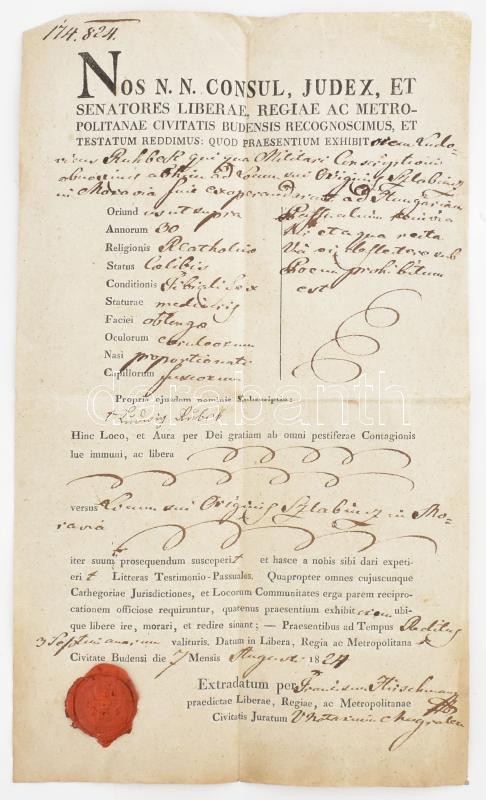 174.824.
NOS N. N. CONSUL, JUDEX, ET
SENATORES LIBERAE, REGIAE AC METRO-
POLITANAE CIVITATIS BUDENSIS RECOGNOSCIMUS, ET
TESTATUM REDDIMUS: QUOD PRAESENTIUM EXHIBITorem Ludo-
vicus qui qua Militari Conscriptioni
ad Locum sui Originis
in Moravia ad Hungariam
Oriund us ut supra
Annorum 30
Religionis RCatholica
Status Coelibis
Conditionis
Staturae mediocris
Faciei oblongae
Oculorum coeruleorum
Nasi proportionati
Capillorum fuscorum
est
Propria ejusdem nominis Subscriptio:
Hinc Loco, et Aura per Dei gratiam ab omni pestiferae Contagionis
lue immuni, ac libera
versus Locum sui Originis in Mo-
ravia
iter suum prosequendum susceperit et hasce a nobis sibi dari expeti-
erit Litteras Testimonio-Passuales. Quapropter omnes cujuscunque
Cathegoriae Jurisdictiones, et Locorum Communitates erga parem recipro-
cationem officiose requiruntur, quatenus praesentium exhibitorem ubi-
que libere ire, morari, et redire sinant; — Praesentibus ad Tempus Reditus
3 Septimanarum valituris. Datum in Libera, Regia ac Metropolitana
Civitate Budensi die 7 Mensis August 1824
Extradatum per Franciscum Hirschmann
praedictae Liberae, Regiae, ac Metropolitanae
Civitatis Juratum V Notarium
darabanth